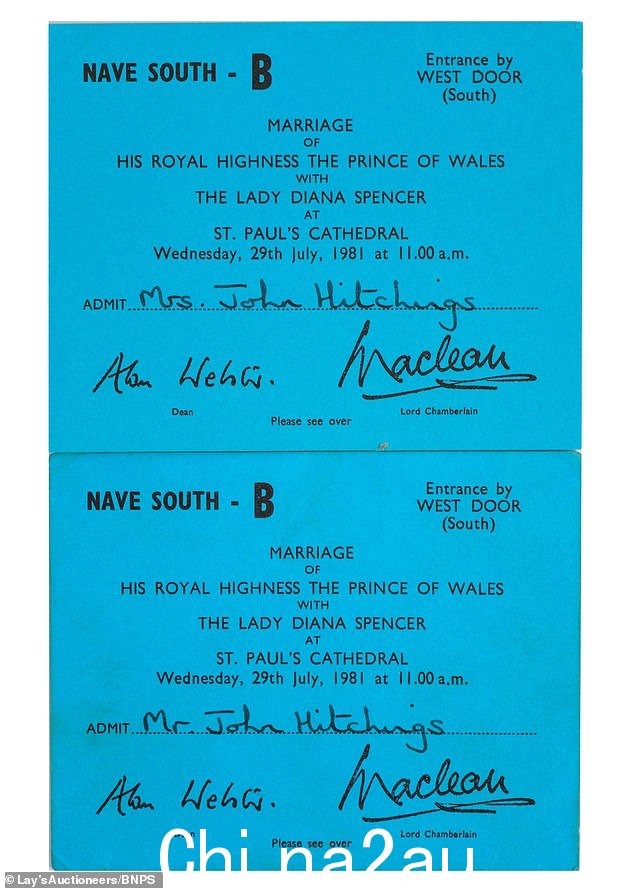 NAVE SOUTH - B
Entrance by
WEST DOOR
(South)
MARRIAGE
OF
HIS ROYAL HIGHNESS THE PRINCE OF WALES
WITH
THE LADY DIANA SPENCER
AT
ST. PAUL'S CATHEDRAL
Wednesday, 29th July, 1981 at 11.00 a.m.
ADMIT Mrs. John Hitchings
Alan Webster. Maclean
Dean Lord Chamberlain
Please see over
NAVE SOUTH - B
Entrance by
WEST DOOR
(South)
MARRIAGE
OF
HIS ROYAL HIGHNESS THE PRINCE OF WALES
WITH
THE LADY DIANA SPENCER
AT
ST. PAUL'S CATHEDRAL
Wednesday, 29th July, 1981 at 11.00 a.m.
ADMIT Mr. John Hitchings
Alan Webster. Maclean
Dean Lord Chamberlain
Please see over
Chi na2au
© Lay'sAuctioneers/BNPS